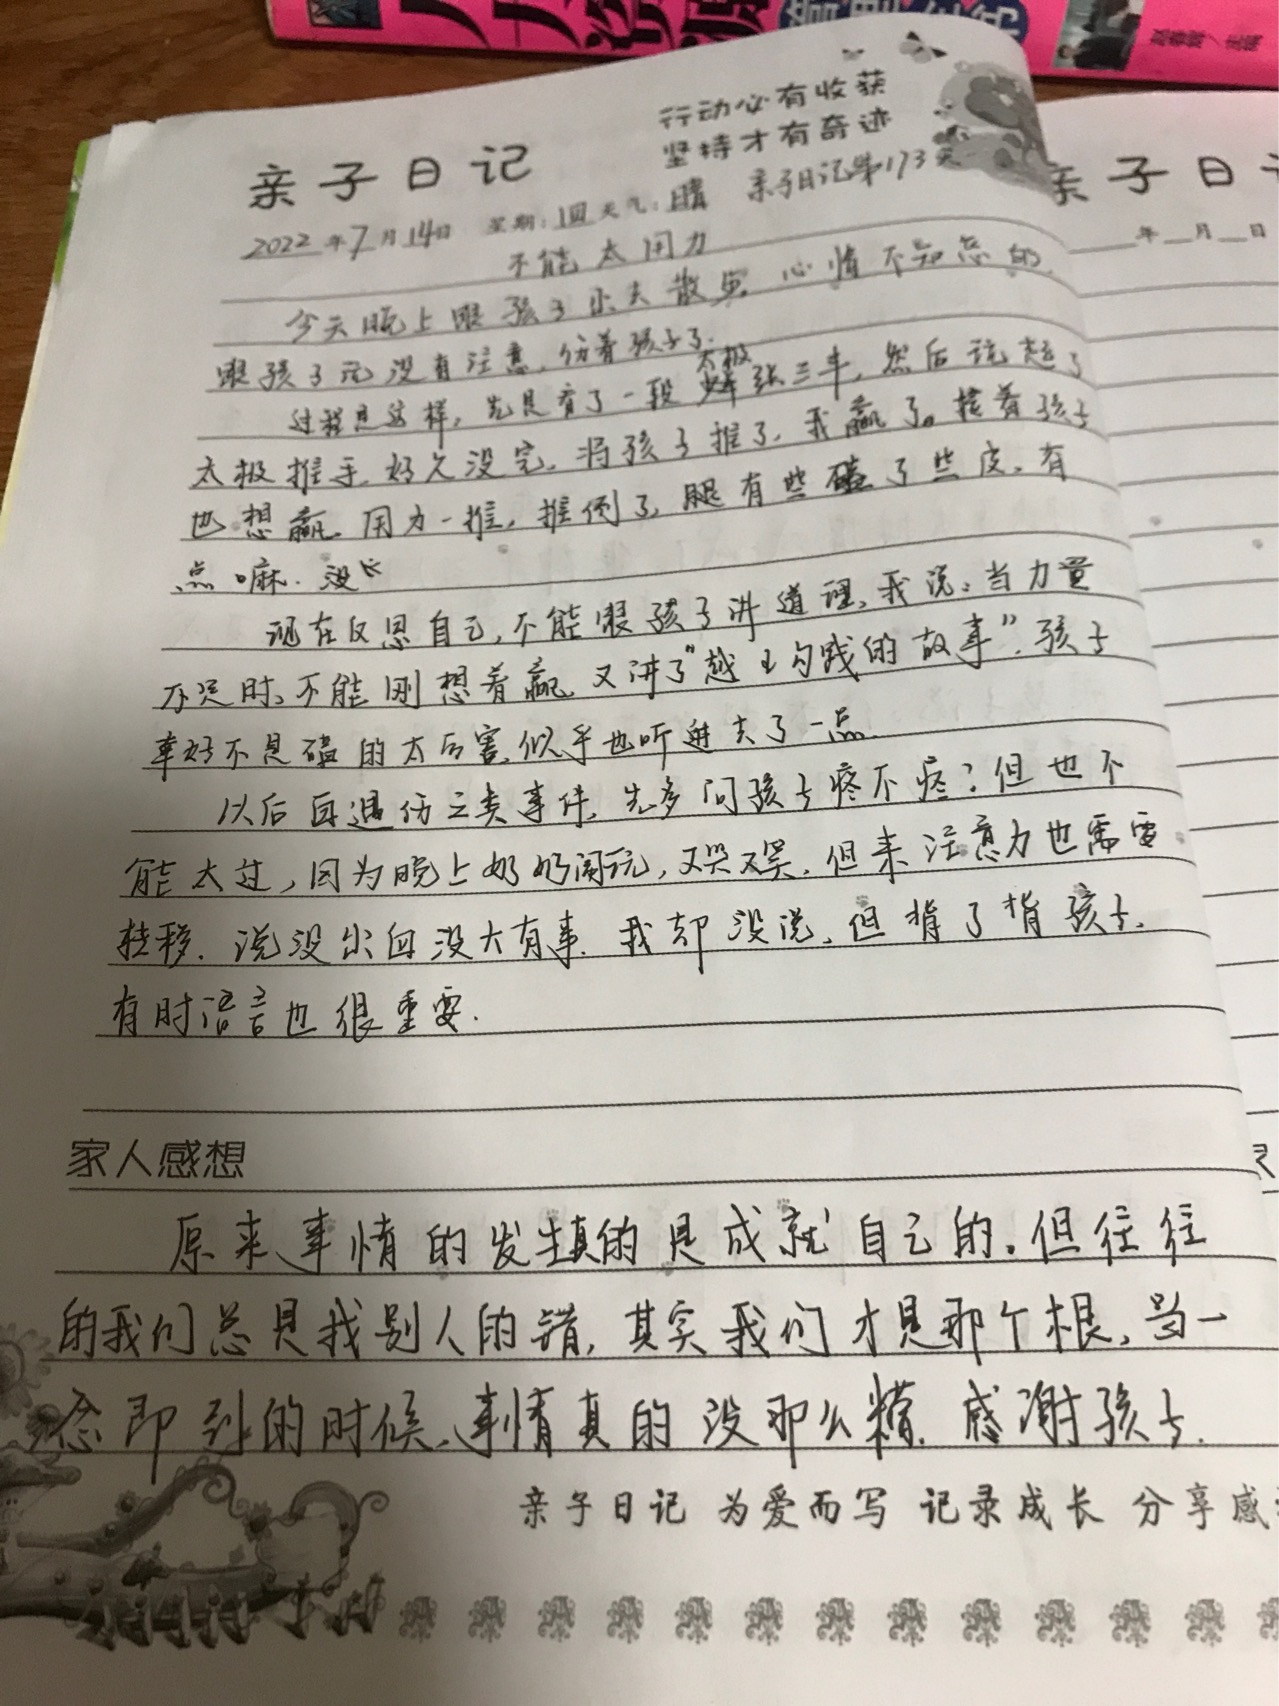 行动必有收获
坚持才有奇迹
亲子日记
亲子日记第173天
2022年7月14日 星期:四 天气:晴
不能太用力
今天晚上跟孩子出去散步 心情不知怎的
跟孩子玩没有注意,伤着孩子了.
过程是这样,先是看了一段太极张三丰,然后玩起了
太极推手.好久没完,将孩子推了,我赢了。接着孩子
也想赢 用力一推,推倒了,腿有些磕了些皮,有
点嘛.没
现在反思自己,不能跟孩子讲道理,我说:当力量
不足时,不能刚想着赢 又讲了"越王勾践的故事".孩子
幸好不是磕的太厉害,似乎也听进去了一点.
以后再遇伤之类事件,先多问孩子疼不疼?但也不
能太过,因为晚上奶奶闹玩,又哭又笑,但来注意力也需要
转移.说没出血没大有事.我却没说,但揹了揹孩子.
有时语言也很重要.
家人感想
原来事情的发生真的是成就自己的。但往往
的我们总是找别人的错,其实我们才是那个根,当一
念即到的时候,事情真的没那么糟.感谢孩子.
亲子日记 为爱而写 记录成长 分享感
亲子日
年 月 日